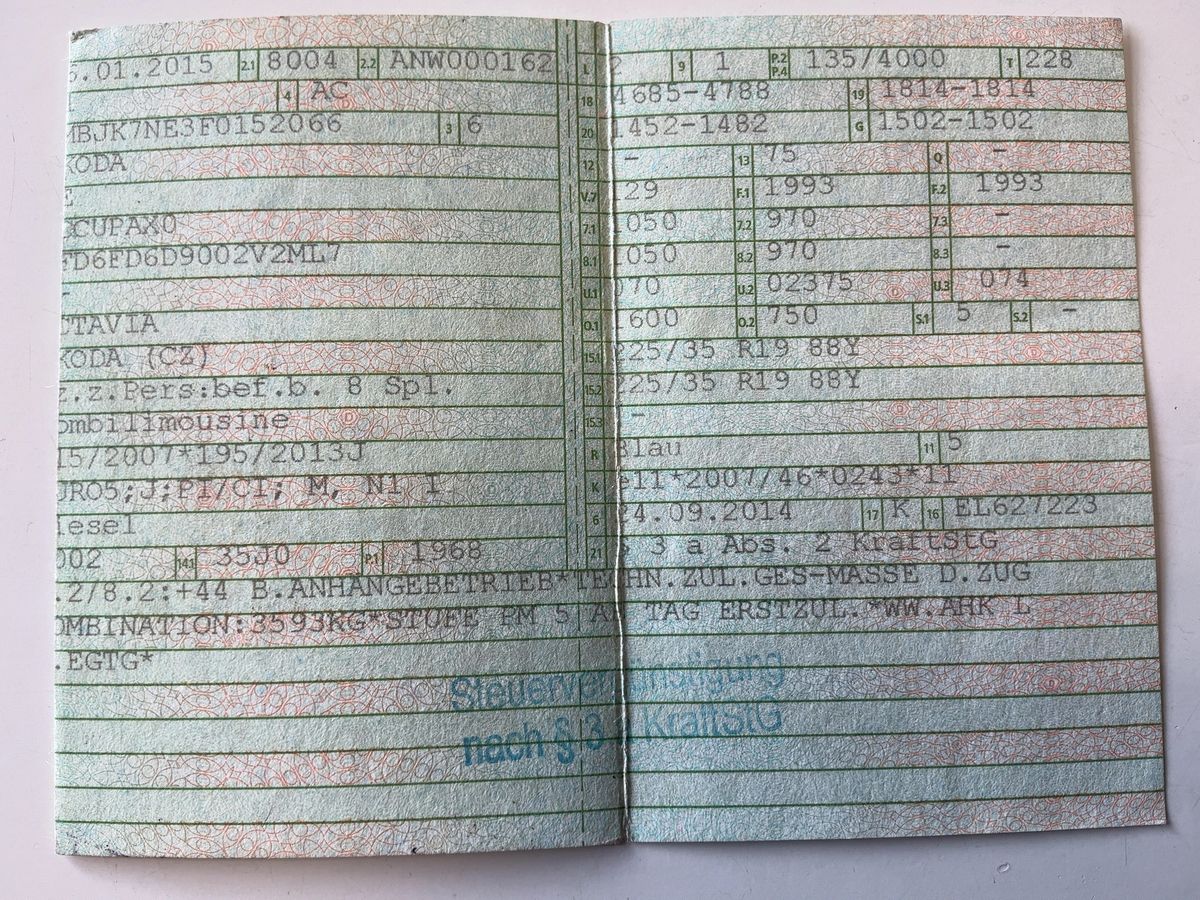 5.01.2015 2.1 8004 2.2 ANW000162
4 AC
MBJK7NE3F0152066 3 6
KODA
CUPAX0
FD6FD6D9002V2ML7
-
CTAVIA
KODA (CZ)
z.z.Pers:bef.b. 8 Spl.
ombilimousine
15/2007*195/2013J
URO5;J;PI/CI; M, N1 I
iesel
002 14.1 35J0 P.1 1968
L 2 9 1 P.2 P.4 135/4000 T 228
18 4685-4788 19 1814-1814
20 1452-1482 G 1502-1502
12 - 13 75 Q -
V.7 129 F.1 1993 F.2 1993
7.1 1050 7.2 970 7.3 -
8.1 1050 8.2 970 8.3 -
U.1 70 U.2 02375 U.3 074
O.1 1600 O.2 750 S.1 5 S.2 -
15.1 225/35 R19 88Y
15.2 225/35 R19 88Y
15.3 -
R Blau 11 5
K e11*2007/46*0243*11
6 24.09.2014 17 K 16 EL627223
21 § 3 a Abs. 2 KraftStG
.2/8.2:+44 B.ANHANGEBETRIEB*TECHN.ZUL.GES-MASSE D.ZUG
OMBINATION:3593KG*STUFE PM 5 AB TAG ERSTZUL.*WW.AHK L
.EGTG*
Steuervergünstigung
nach § 3 KraftStG